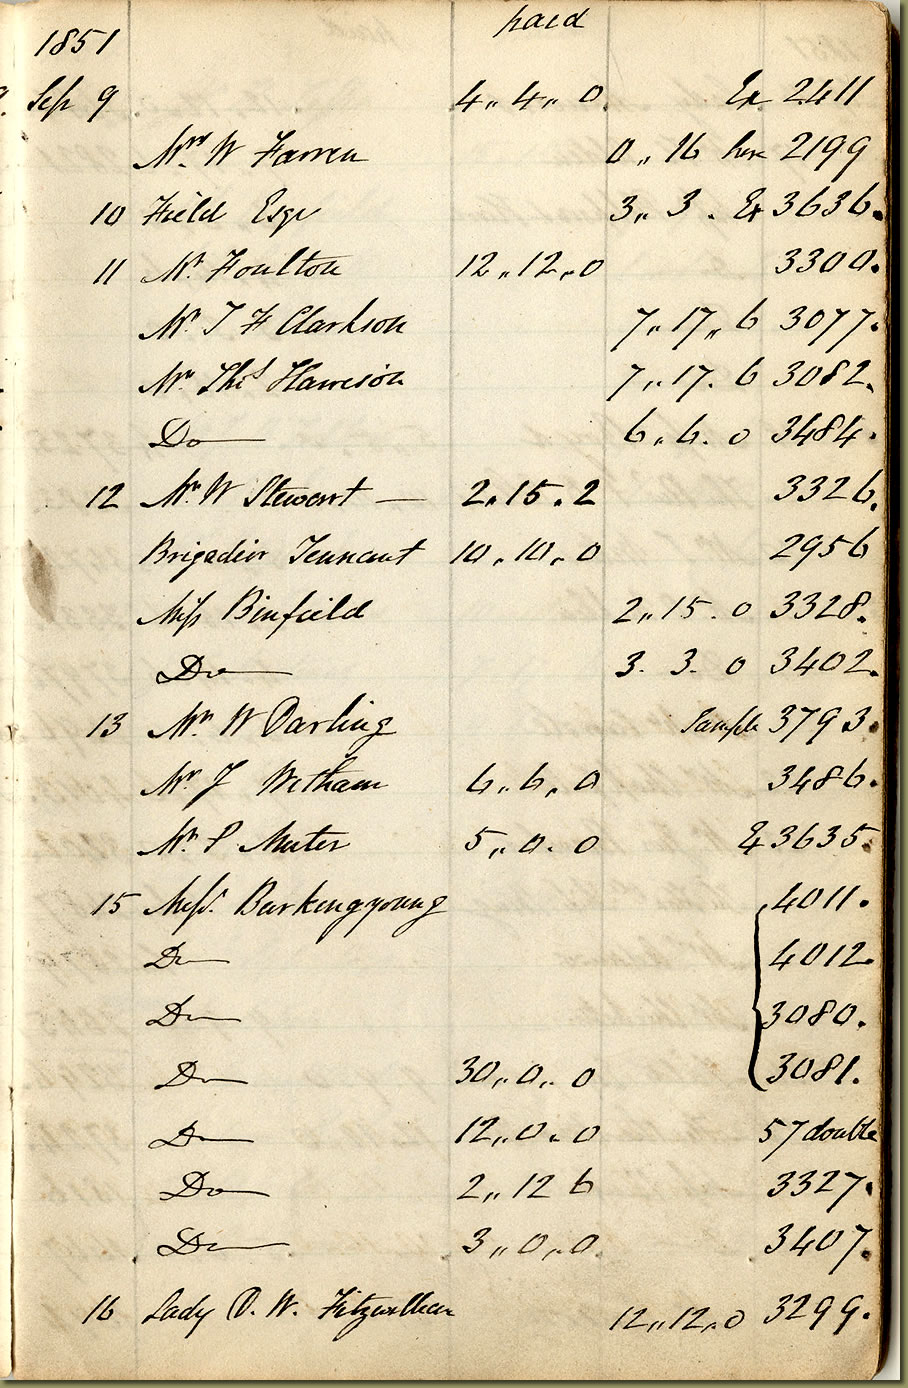 paid
1851
Sep 9 4,, 4,, 0. Ex 2411
Mr W Farren 0,, 16 hire 2199
10 Field Esqr 3,, 3. Ex 3636.
11 Mr Foulton 12,, 12,, 0 3300.
Mr T H Clarkson 7,, 17,, 6 3077.
Mr Thos Harrison 7,, 17. 6 3082.
Do 6,, 6. 0 3484.
12 Mr W Stewart — 2,, 15. 2 3326.
Brigadier Tennant 10,, 10,, 0 2956
Miss Binfield 2,, 15. 0 3328.
Do 3. 3. 0 3402.
13 Mr W Darling Sample 3793.
Mr J Witham 6,, 6,, 0 3486.
Mr P Muter 5,, 0. 0 & 3635.
15 Messrs 4011.
Do 4012.
Do 3080.
Do 30,, 0,, 0 3081.
Do 12,, 0,, 0 57 double
Do 2,, 12 6 3327.
Do 3,, 0,, 0. 3407.
16 Lady D. W. Fitzwilliam 12,, 12,, 0 3299.